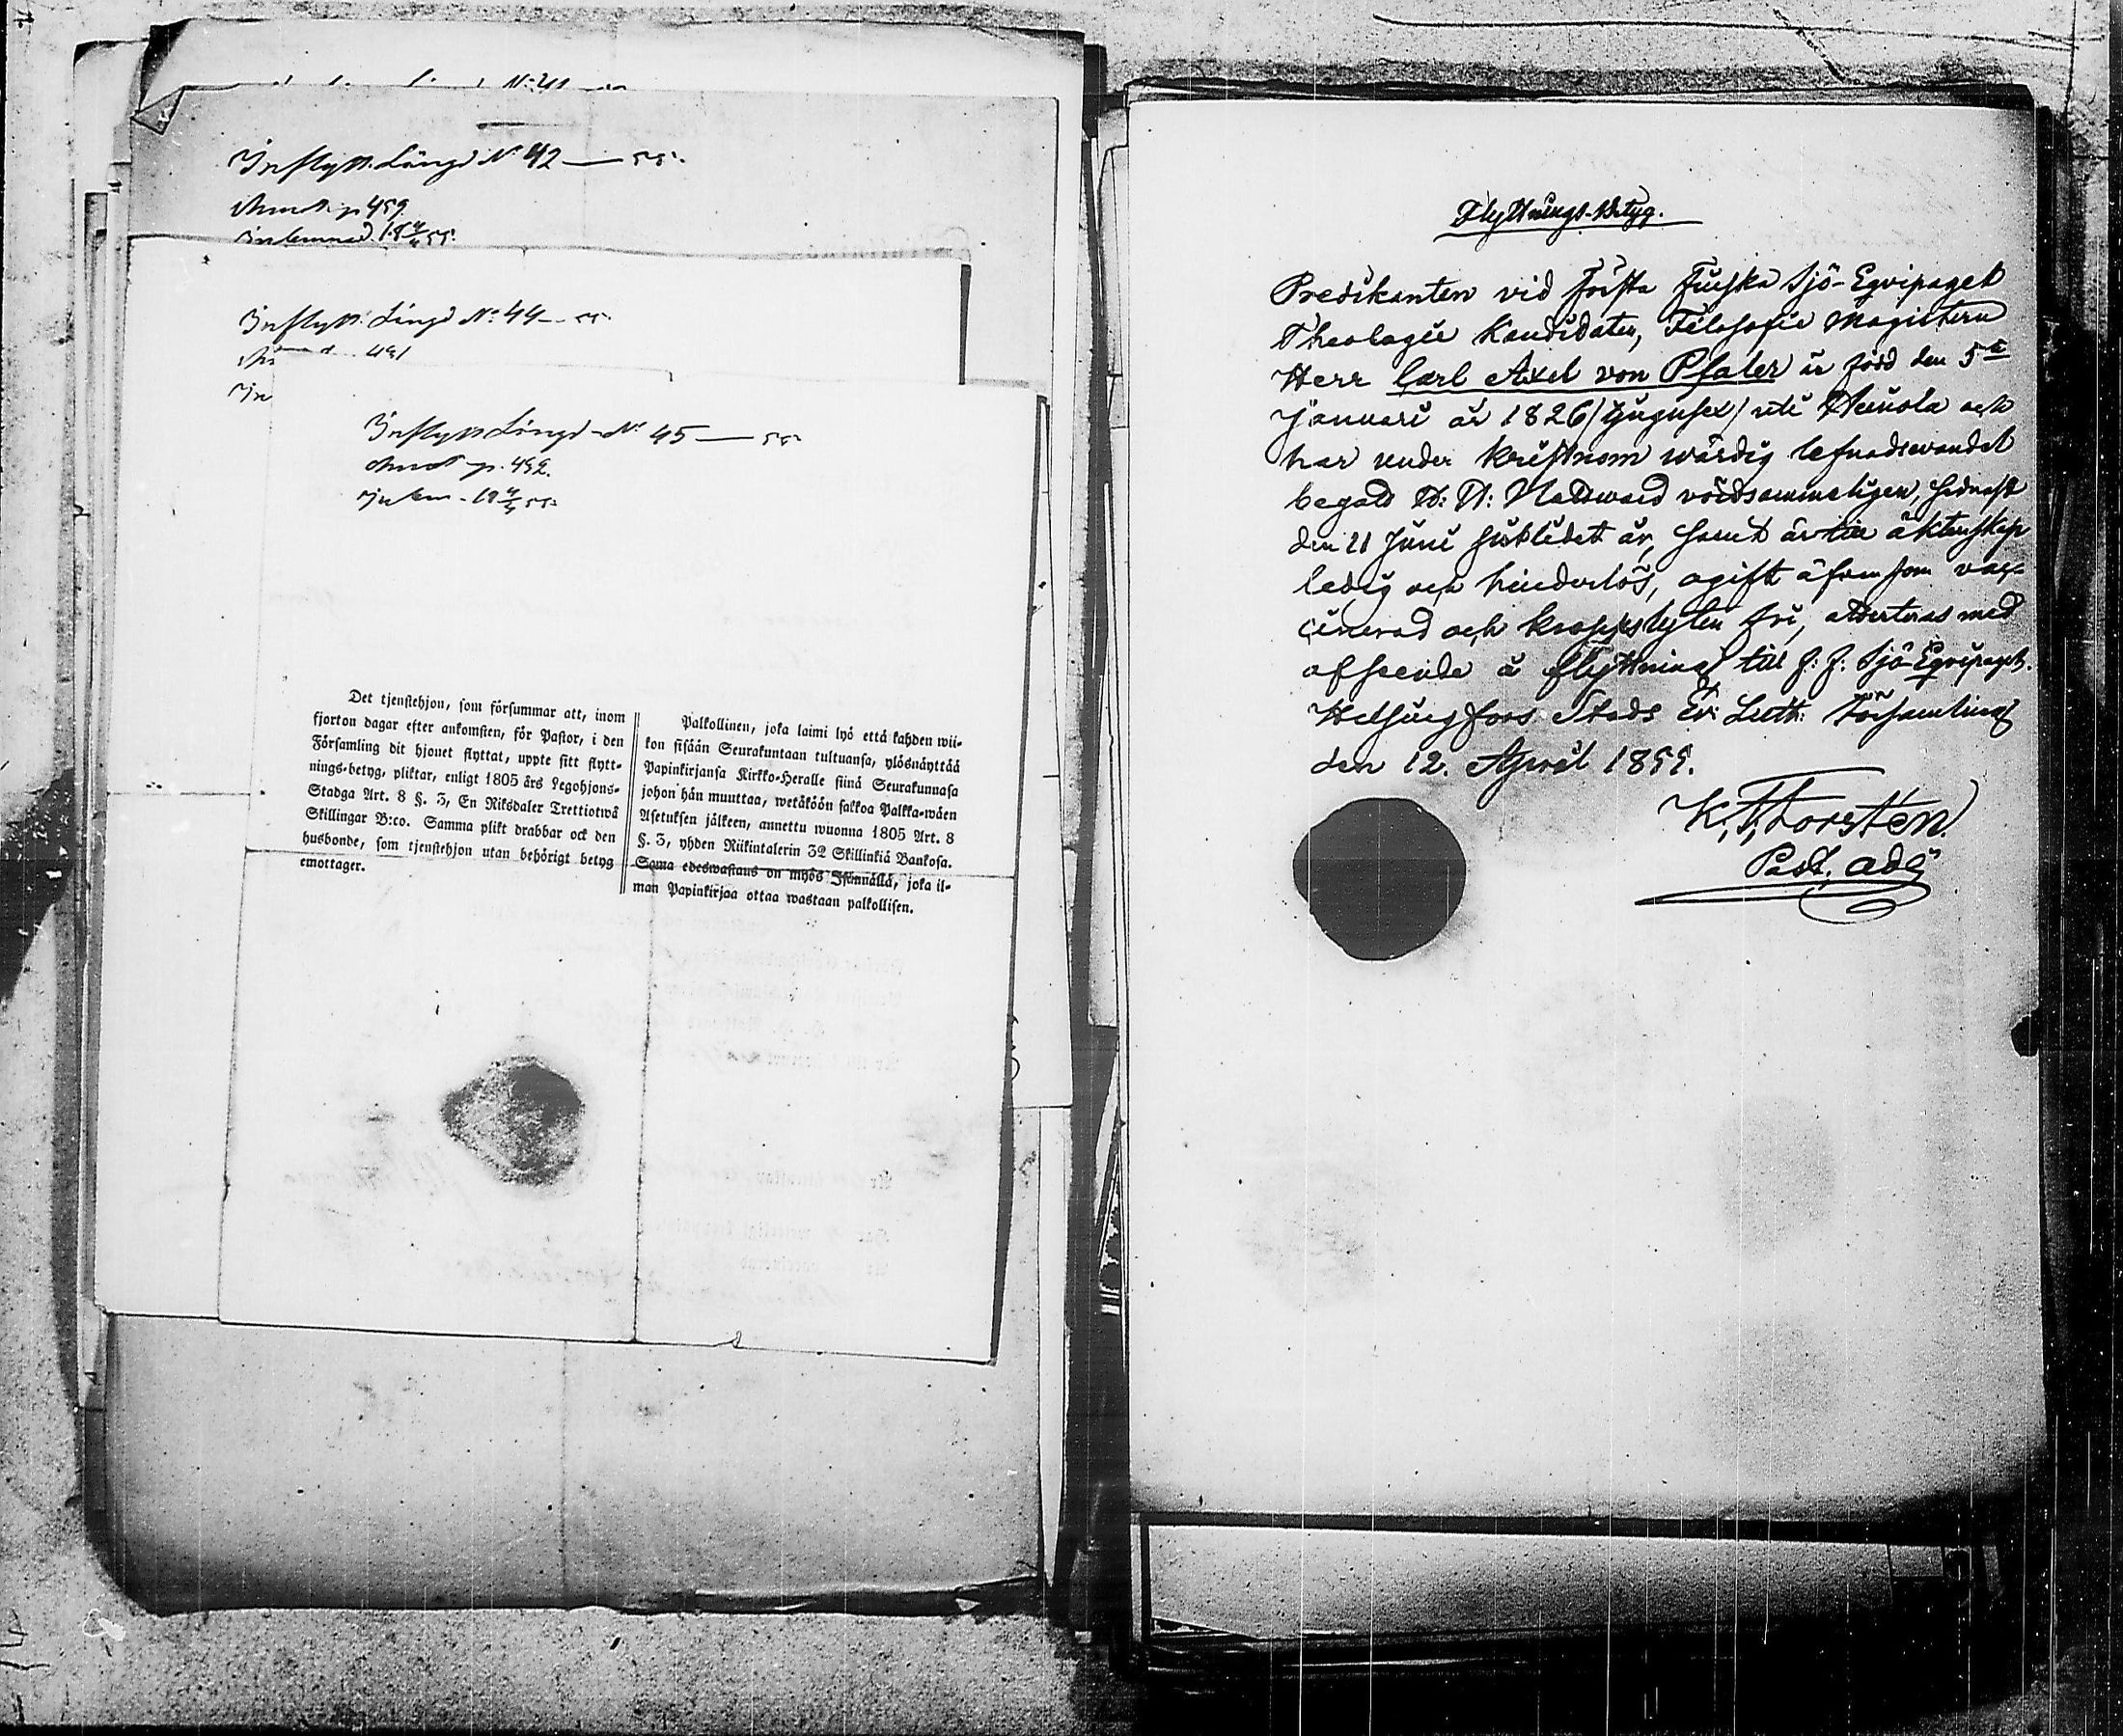 Inflytt. Längd No 42 — 55.
p 459.
Inlemnad 18 4/4 55.
Inflytt. Längd No: 44 — 55.
491
In
Inflytt Längd No 45 — 55
p. 492.
Inlem. 18 4/4 55.
Det tjenstehjon, som försummar att, inom
fjorton dagar efter ankomsten, för Pastor, i den
Församling dit hjonet flyttat, uppte sitt flytt-
nings-betyg, pliktar, enligt 1805 års Legohjons-
Stadga Art. 8 §. 3, En Riksdaler Trettiotwå
Skillingar B:co. Samma plikt drabbar ock den
husbonde, som tjenstehjon utan behörigt betyg
emottager.
Palkollinen, joka laimi lyö että kahden wii-
kon sisään Seurakuntaan tultuansa, ylösnäyttää
Papinkirjansa Kirkko-Heralle siinä Seurakunnasa
johon hän muuttaa, wetäköön sakkoa Palkka-wäen
Asetuksen jälkeen, annettu wuonna 1805 Art. 8
§. 3, yhden Riikintalerin 32 Skillinkiä Bankosa.
Sama edeswastaus on myös Isännällä, joka il-
man Papinkirjaa ottaa wastaan palkollisen.
Flyttnings-Betyg.
Predikanten vid Första Finska Sjö-Eqvipaget
Theologie Kandidaten, Filosofie Magistern
Herr Carl Axel von Pfaler är född den 5te
Januari år 1826 /tjugusex/ uti Heinola och
har under kristnom wärdig lefnadswandel
begått H: H: Nattward vördsammeligen, sednast
den 11 Juni sistlidet år, samt är till äktenskap
ledig och hinderlös, ogift äfvensom vac-
cinerad och kroppslyten fri, attesteras med
afseende å flyttning till f. f. Sjö-Eqvipaget.
Helsingfors Stads Ev: Luth: Församling
den 12. April 1855.
K. T. Forstén
Past. adj